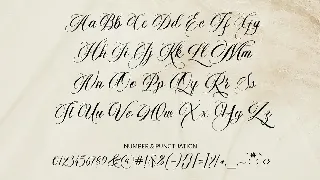 Aa Bb Cc Dd Ee Ff Gg
Hh Ii Jj Kk Ll Mm
Nn Oo Pp Qq Rr Ss
Tt Uu Vv Ww Xx Yy Zz
NUMBER & PUNCTUATION
0123456789